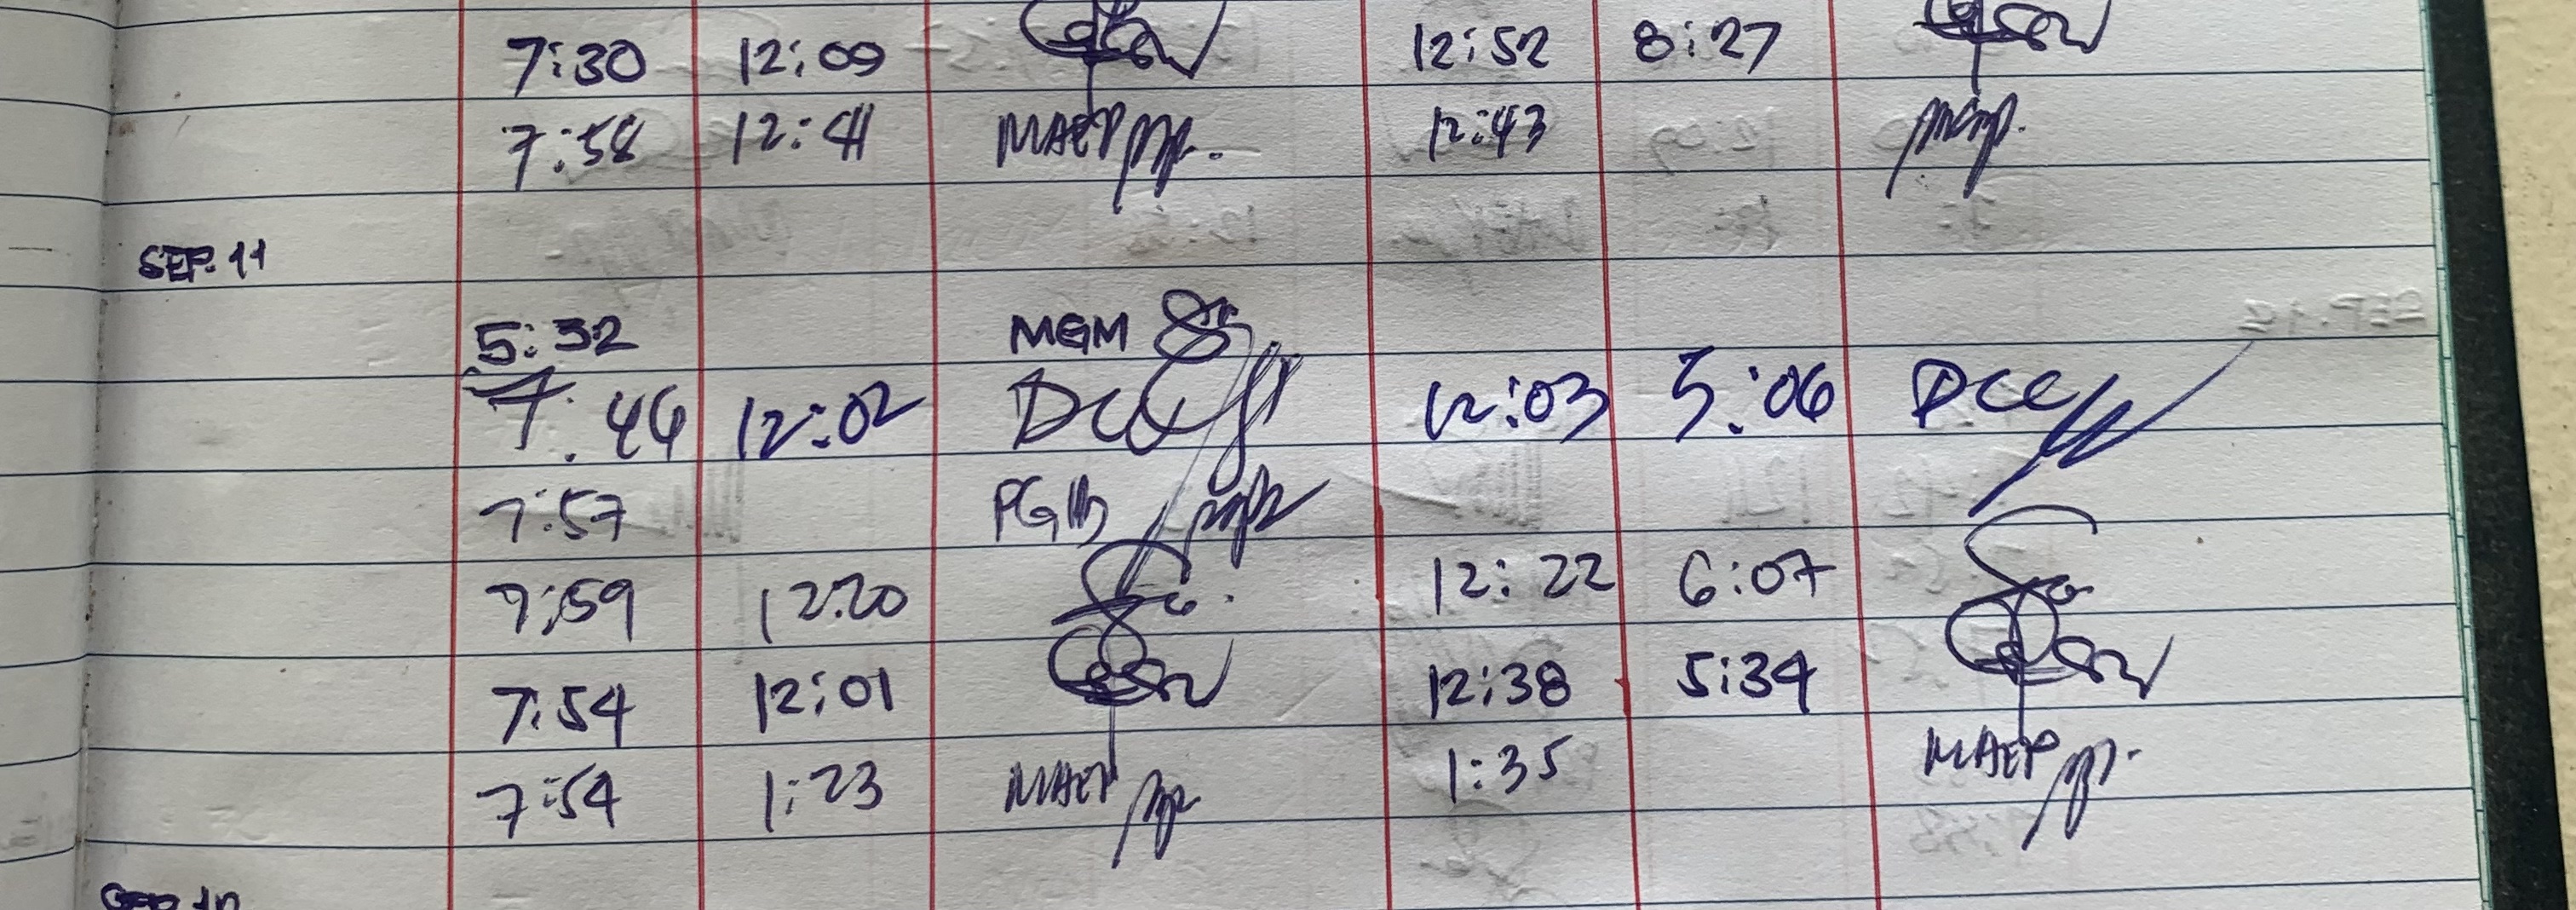 7:30 12:09 12:52 8:27
7:58 12:41 MAEP 12:43
SEP. 11
5:32 MGM
7:46 12:02 DCC 12:03 5:06 DCC
7:57 PGB
7:59 12:20 12:22 6:07
7:54 12:01 12:38 5:34
7:54 1:23 MAEP 1:35 MAEP